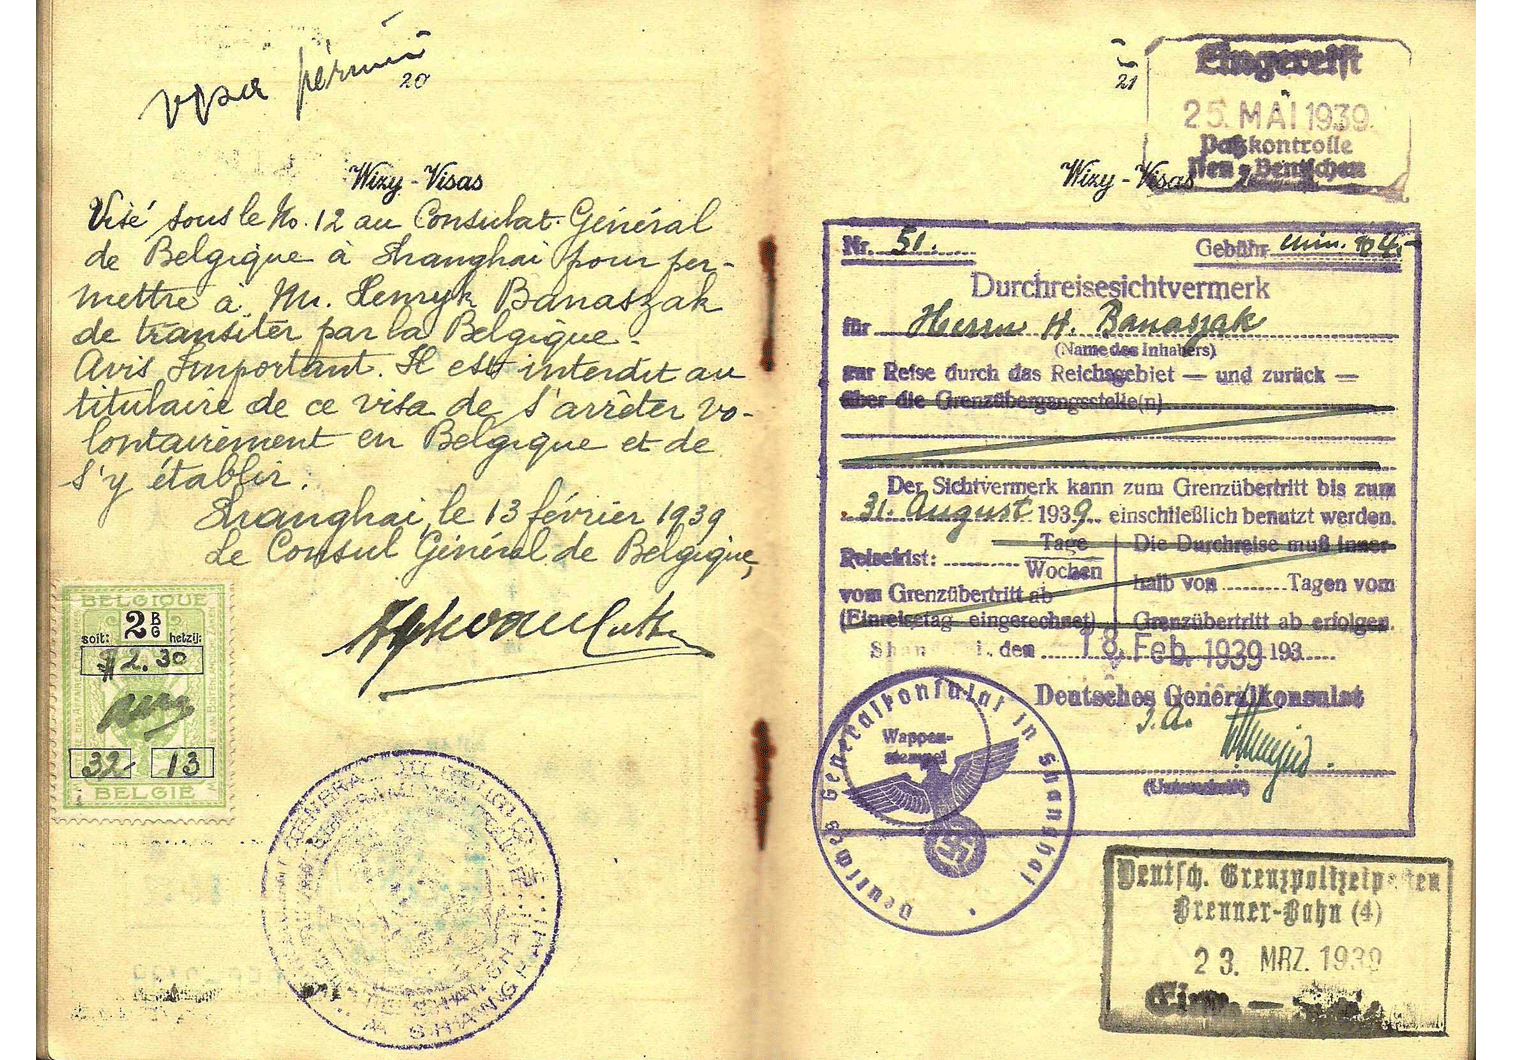 visa périmé
20
Wizy - Visas
Visé sous le No. 12 au Consulat Général
de Belgique à Shanghai pour per-
mettre à Mr. Henryk Banaszak
de transiter par la Belgique.
Avis Important. Il est interdit au
titulaire de ce visa de s'arrêter vo-
lontairement en Belgique et de
s'y établir.
Shanghai, le 13 février 1939
Le Consul Général de Belgique,
BELGIQUE
soit: 2 B G hetzij:
$2.30
32- 13
BELGIË
SHANGHAI
21
Eingereist
25. MAI 1939
Paßkontrolle
Neu-Bentschen
Wizy - Visas
Nr. 51. Gebühr
Durchreisesichtvermerk
für Herrn H. Banaszak
(Name des Inhabers)
zur Reise durch das Reichsgebiet — und zurück —
über die Grenzübergangsstelle(n)
Der Sichtvermerk kann zum Grenzübertritt bis zum
31. August 1939 einschließlich benutzt werden.
Reisefrist: Tage
Wochen
vom Grenzübertritt ab
(Einreisetag eingerechnet)
Die Durchreise muß inner-
halb von Tagen vom
Grenzübertritt ab erfolgen.
Shanghai, den 18. Feb. 1939 193
Deutsches Generalkonsulat
I.A.
(Unterschrift)
Wappen-
stempel
Deutsches Generalkonsulat in Shanghai
Deutsch. Grenzpolizeiposten
Brenner-Bahn (4)
23. MRZ. 1939